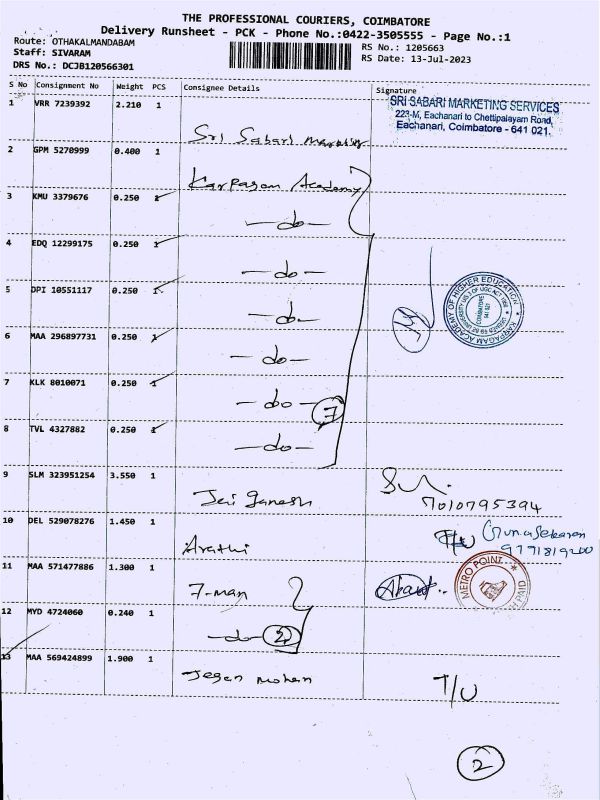 THE PROFESSIONAL COURIERS, COIMBATORE
Delivery Runsheet - PCK - Phone No.:0422-3505555 - Page No.:1
Route: OTHAKALMANDABAM
Staff: SIVARAM
DRS No.: DCJB120566301
RS No.: 1205663
RS Date: 13-Jul-2023
S No Consignment No Weight PCS Consignee Details Signature
1 VRR 7239392 2.210 1
SRI SABARI MARKETING SERVICES
223-M, Eachanari to Chettipalayam Road,
Eachanari, Coimbatore - 641 021.
Sri Sabari
2 GPM 5270999 0.400 1
Karpagam Academy
3 KMU 3379676 0.250
-do-
4 EDQ 12299175 0.250 1
-do-
5 DPI 10551117 0.250 1
-do-
KARPAGAM ACADEMY OF HIGHER EDUCATION
COIMBATORE
641 021
6 MAA 296897731 0.250 1
-do-
7 KLK 8010071 0.250 1
-do- 7
8 TVL 4327882 0.250 1
-do-
9 SLM 323951254 3.550 1
Jai Ganesh
7010795394
10 DEL 529078276 1.450 1
Arathi
T/U Gunasekaran
9771819200
11 MAA 571477886 1.300 1
7-man
METRO POINT
PAID
12 MYD 4724060 0.240 1
-do- 2
13 MAA 569424899 1.900 1
Jegan mohan
T/U
2